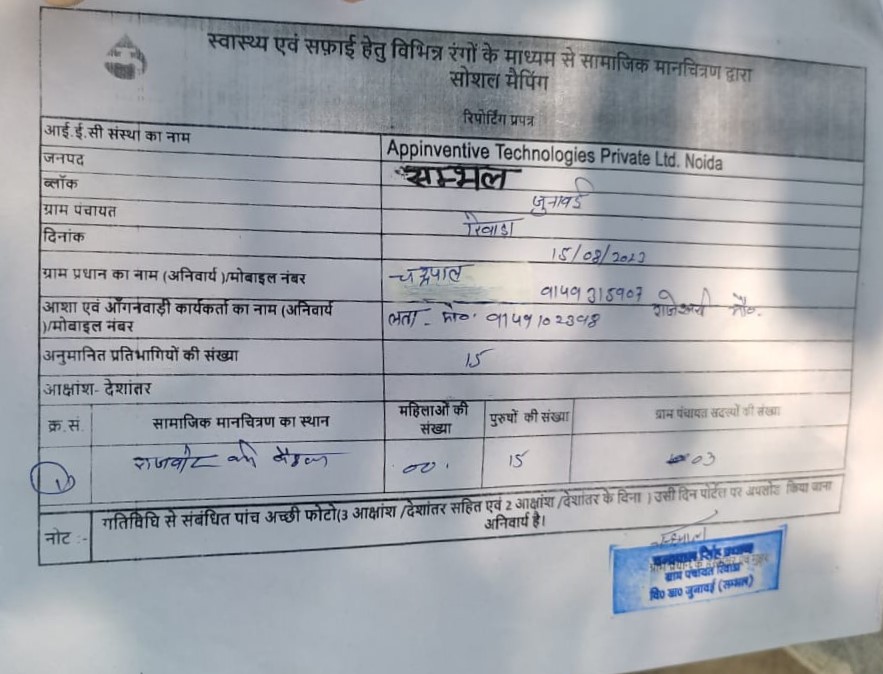 स्वास्थ्य एवं सफ़ाई हेतु विभिन्न रंगों के माध्यम से सामाजिक मानचित्रण द्वारा
सोशल मैपिंग
रिपोर्टिंग प्रपत्र
आई.ई.सी संस्था का नाम Appinventive Technologies Private Ltd. Noida
जनपद सम्भल
ब्लॉक जुनावई
ग्राम पंचायत
दिनांक 15/08/2023
ग्राम प्रधान का नाम (अनिवार्य )/मोबाइल नंबर चन्द्रपाल
आशा एवं आँगनवाड़ी कार्यकर्ता का नाम (अनिवार्य
)/मोबाइल नंबर लता - मौ०
अनुमानित प्रतिभागियों की संख्या 15
आक्षांश- देशांतर
क्र.सं. सामाजिक मानचित्रण का स्थान महिलाओं की संख्या पुरुषों की संख्या ग्राम पंचायत सदस्यों की संख्या
1 की बैठक 00 15 03
नोट :- गतिविधि से संबंधित पांच अच्छी फोटो(3 आक्षांश /देशांतर सहित एवं 2 आक्षांश /देशांतर के विना ) उसी दिन पोर्टल पर अपलोड किया जाना
अनिवार्य है।
ग्राम पंचायत रिवाड़ा
वि० ख० जुनावई (सम्भल)